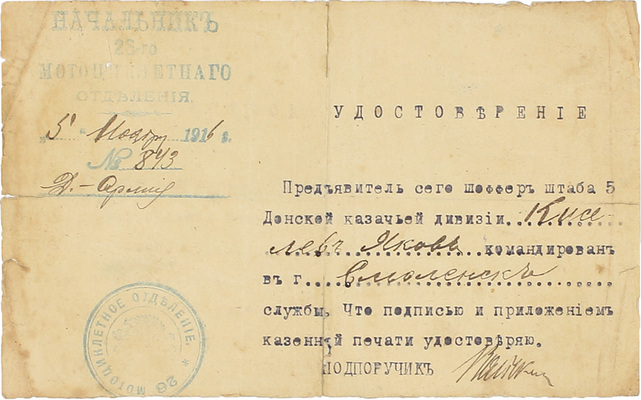 НАЧАЛЬНИКЪ
26-го
МОТОЦИКЛЕТНАГО
ОТДѢЛЕНІЯ.
„5" Ноябр 1916 г.
№ 843
Д.-Армия
УДОСТОВѢРЕНІЕ
Предъявитель сего шофферъ штаба 5
Донской казачьей дивизіи Кисе
левъ Яковъ командированъ
въ г. Смоленскъ
службы, Что подписью и приложеніемъ
казенной печати удостовѣряю.
ПОДПОРУЧИКЪ
26 МОТОЦИКЛЕТНОЕ ОТДѢЛЕНІЕ.